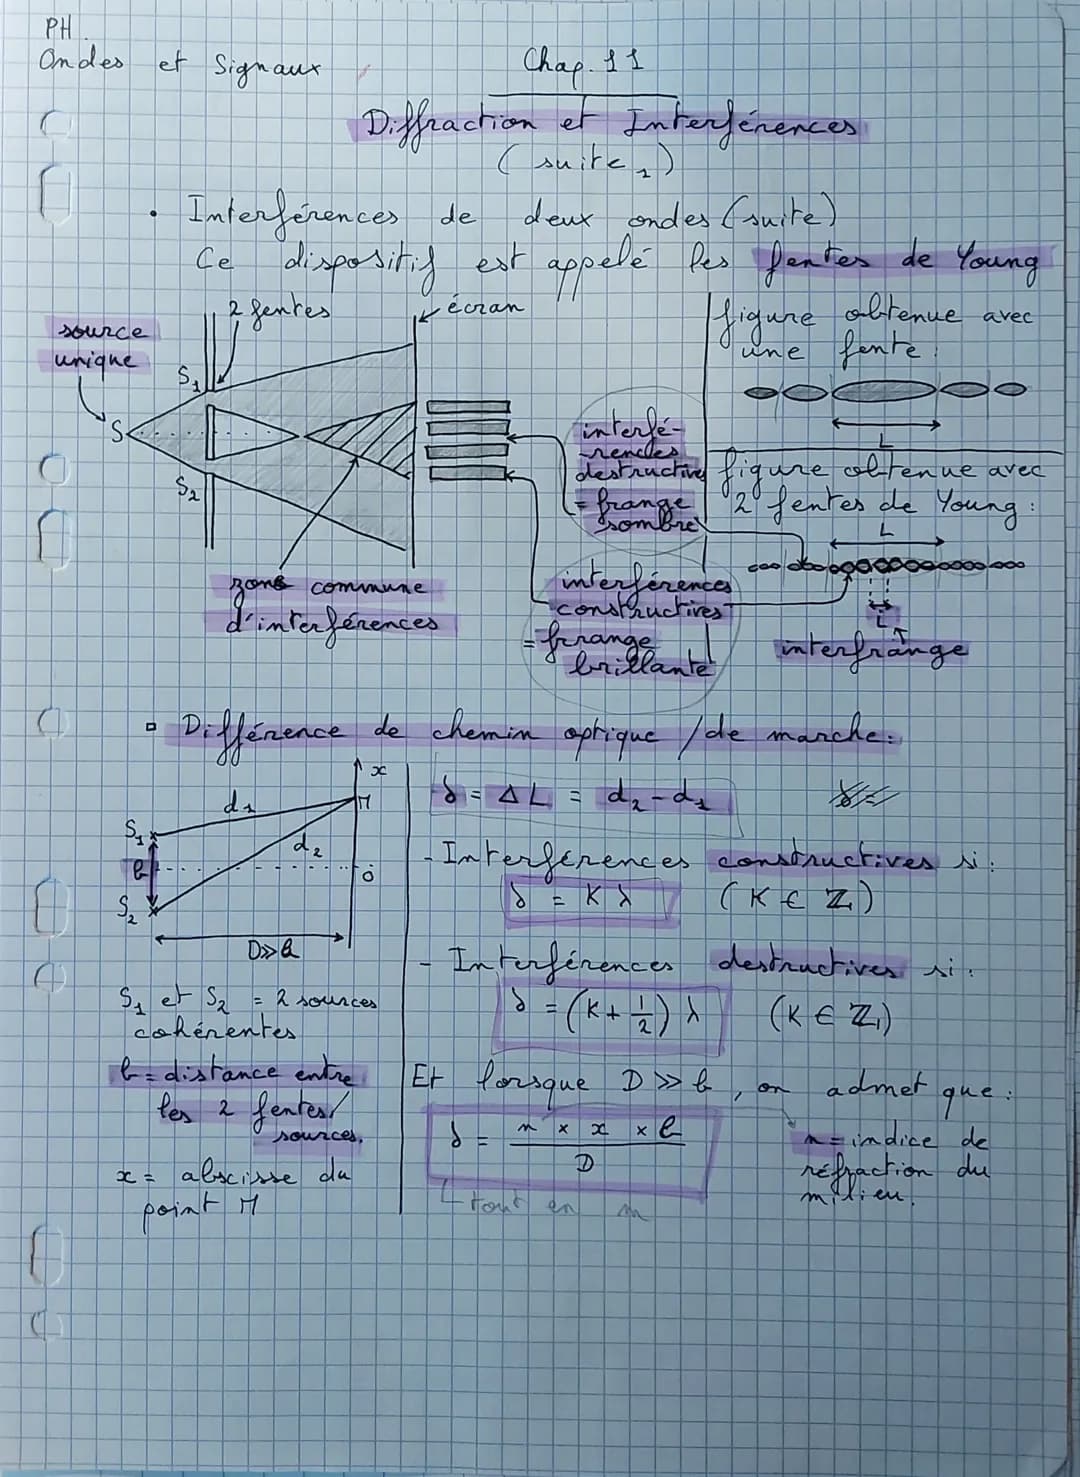 PH.
Ondes et Signaux
Chap. 11
Diffraction et Interférences
(suite 1)
• Interférences de deux ondes (suite)
Ce dispositif est appelé les fentes de Young
source
unique
2 fentes
écran
S1
S
S2
zone commune
d'interférences
interfé-
-rences
destructives
= frange
sombre
interférences
constructives
= frange
brillante
figure obtenue avec
une fente :
L
figure obtenue avec
2 fentes de Young :
L
i
interfrange
▫ Différence de chemin optique / de marche :
x
M
d1
d2
S1
b
S2
O
D>>b
S1 et S2 = 2 sources
cohérentes
b = distance entre
les 2 fentes/
sources.
x = abscisse du
point M
δ = ΔL = d2 - d1
- Interférences constructives si :
δ = K λ (K ∈ ℤ)
- Interférences destructives si :
δ = (K + 1/2) λ (K ∈ ℤ)
Et lorsque D >> b, on admet que :
δ = n × x × b / D
tout en m
n = indice de
réfraction du
milieu.